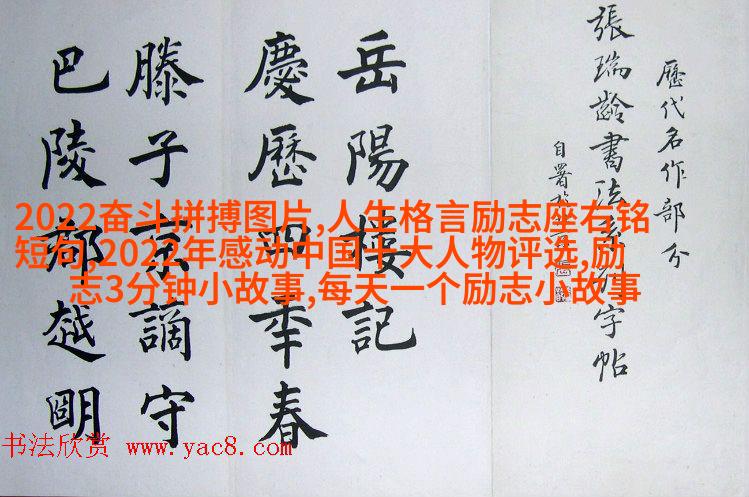 歷代名作部分
張瑞齡書法系列字帖
自署
岳陽樓記
慶歷四年春
滕子京謫守
巴陵郡越明
2022奋斗拼搏图片,人生格言励志座右铭
短句,2021年感动中国十大人物评选,励
志3分钟小故事,每天一个励志小故事
书法欣赏 www.yac8.com